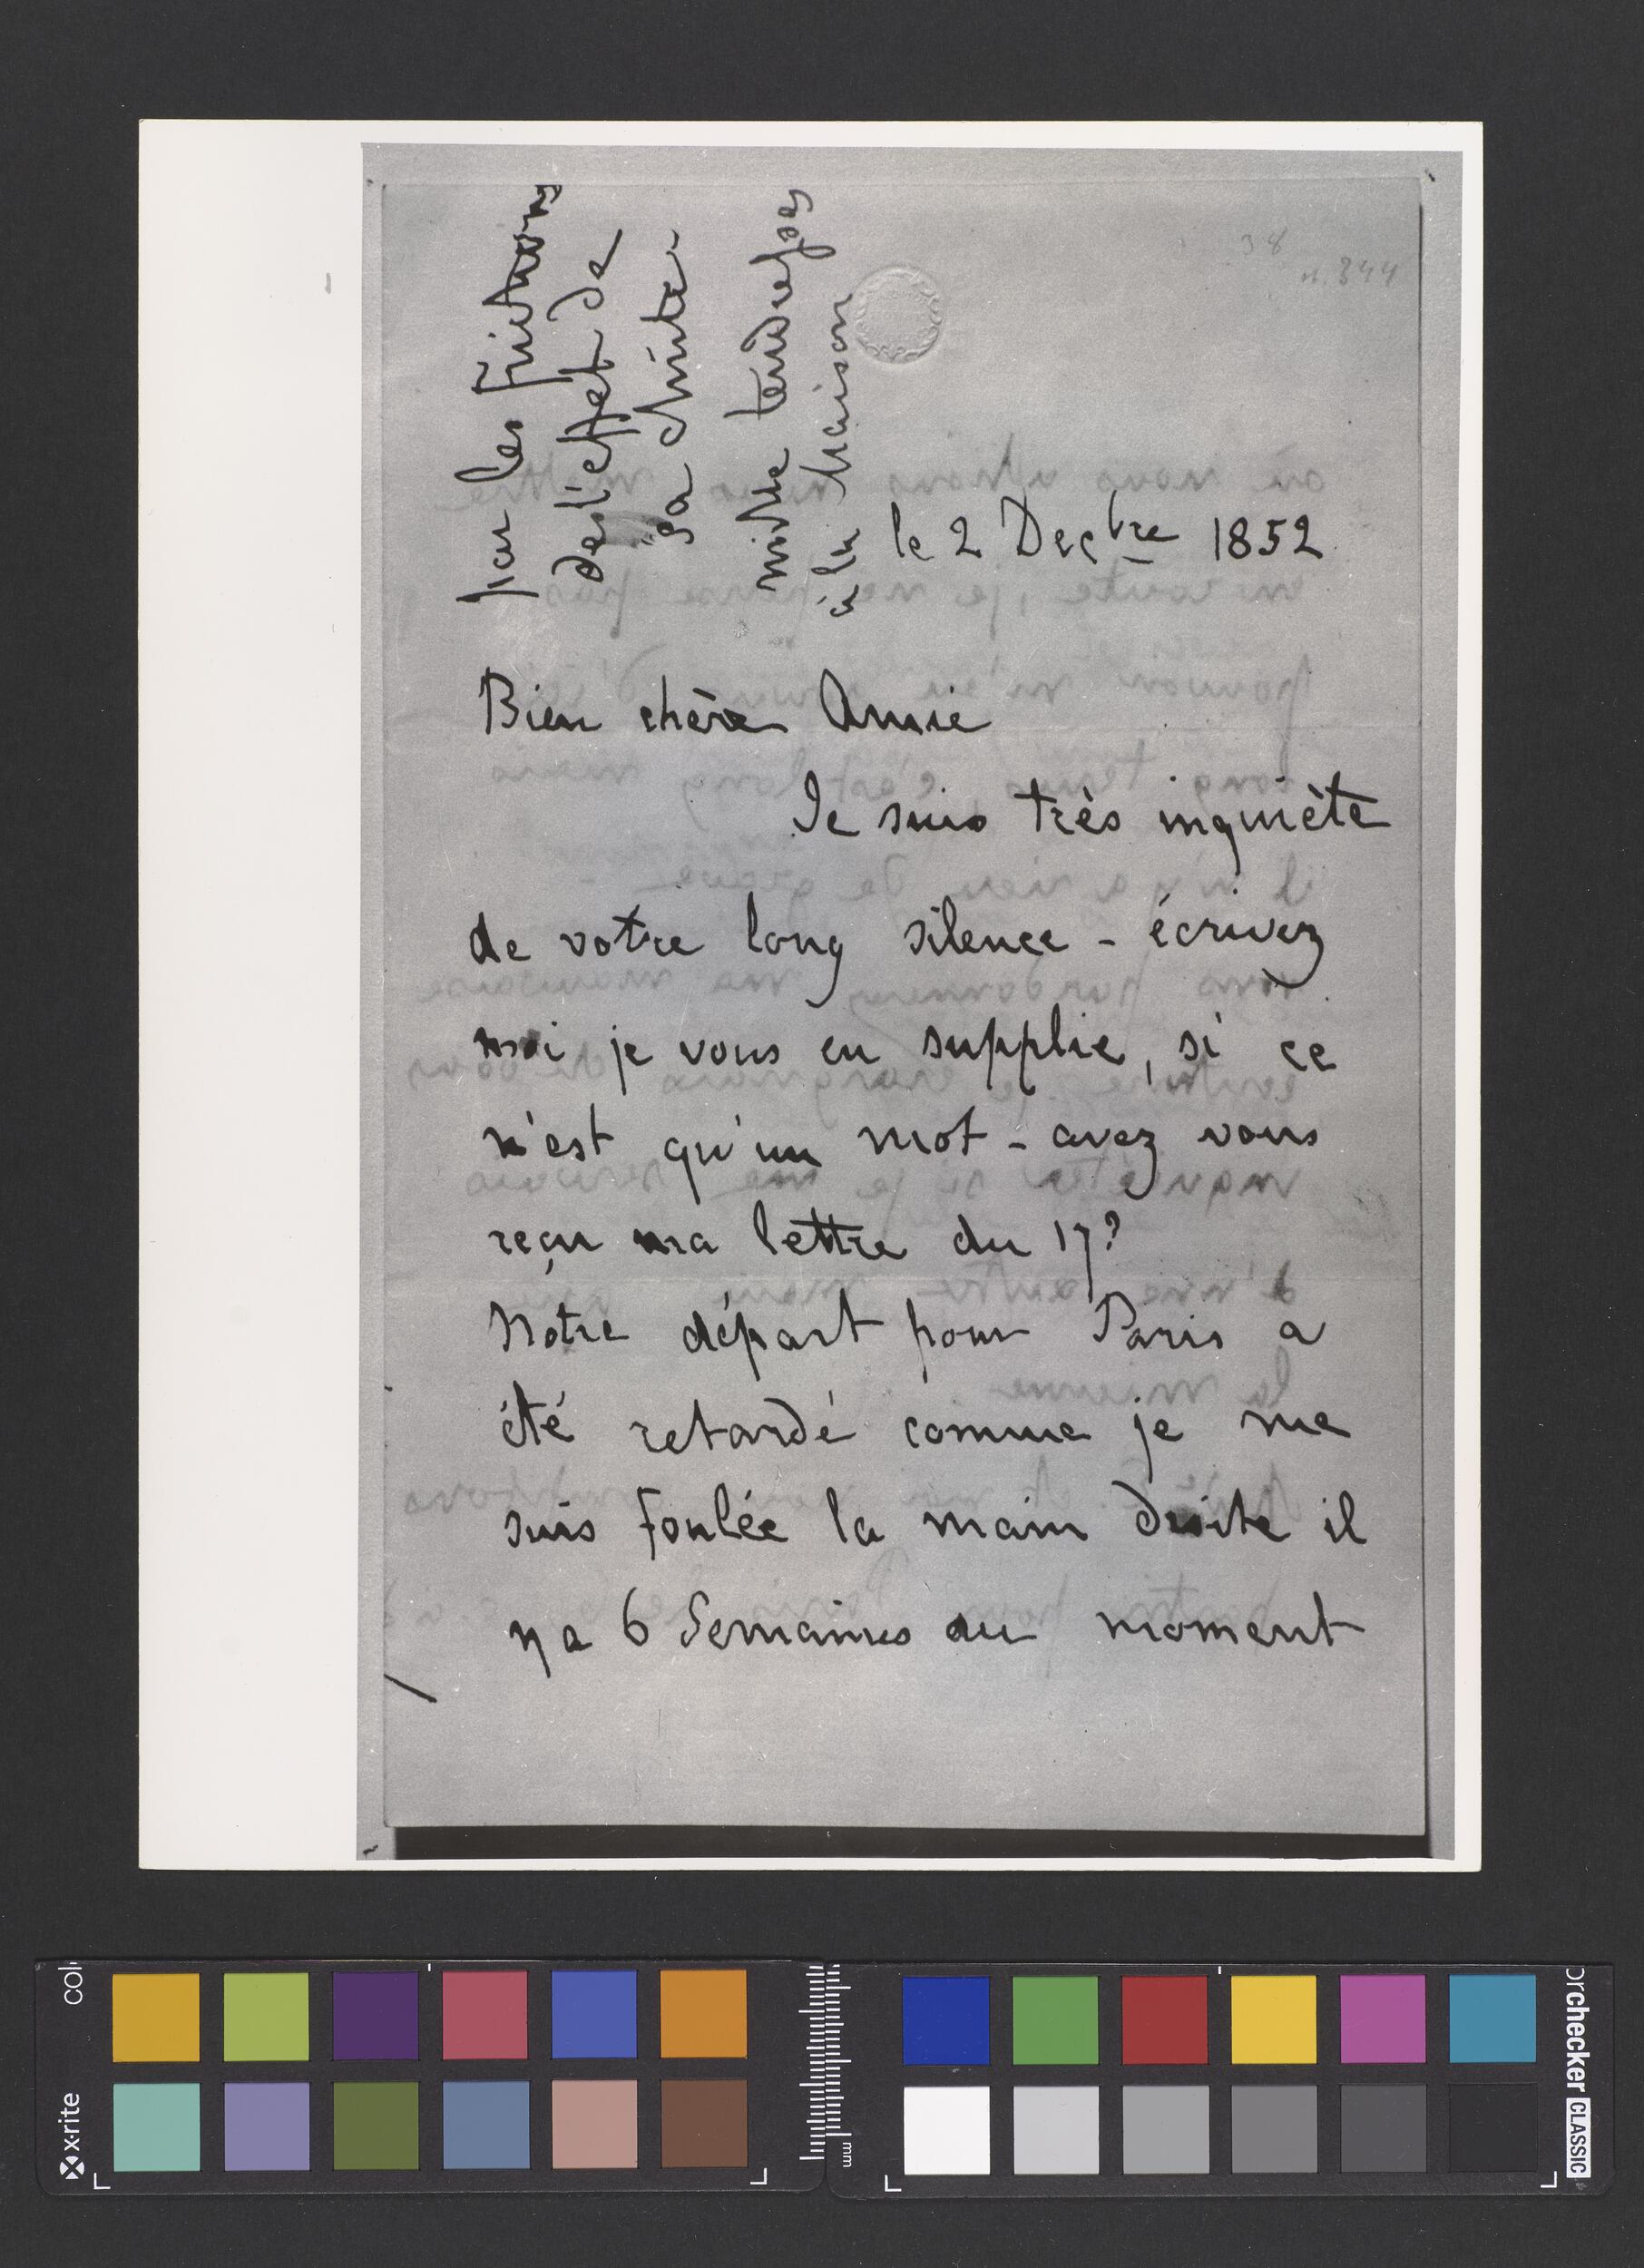 38
n. 344
par les Frictions
de l'effet de
sa chûte.
mille tendresses
à la Maison
le 2 Dec<sup>bre</sup> 1852
Bien chère Amie
Je suis très inquiète
de votre long silence - écrivez
moi je vous en supplie, si ce
n'est qu'un mot - avez vous
reçu ma lettre du 17?
Notre départ pour Paris a
été retardé comme je me
suis foulée la main droite il
y a 6 Semaines au moment
x-rite
colorchecker CLASSIC
mm